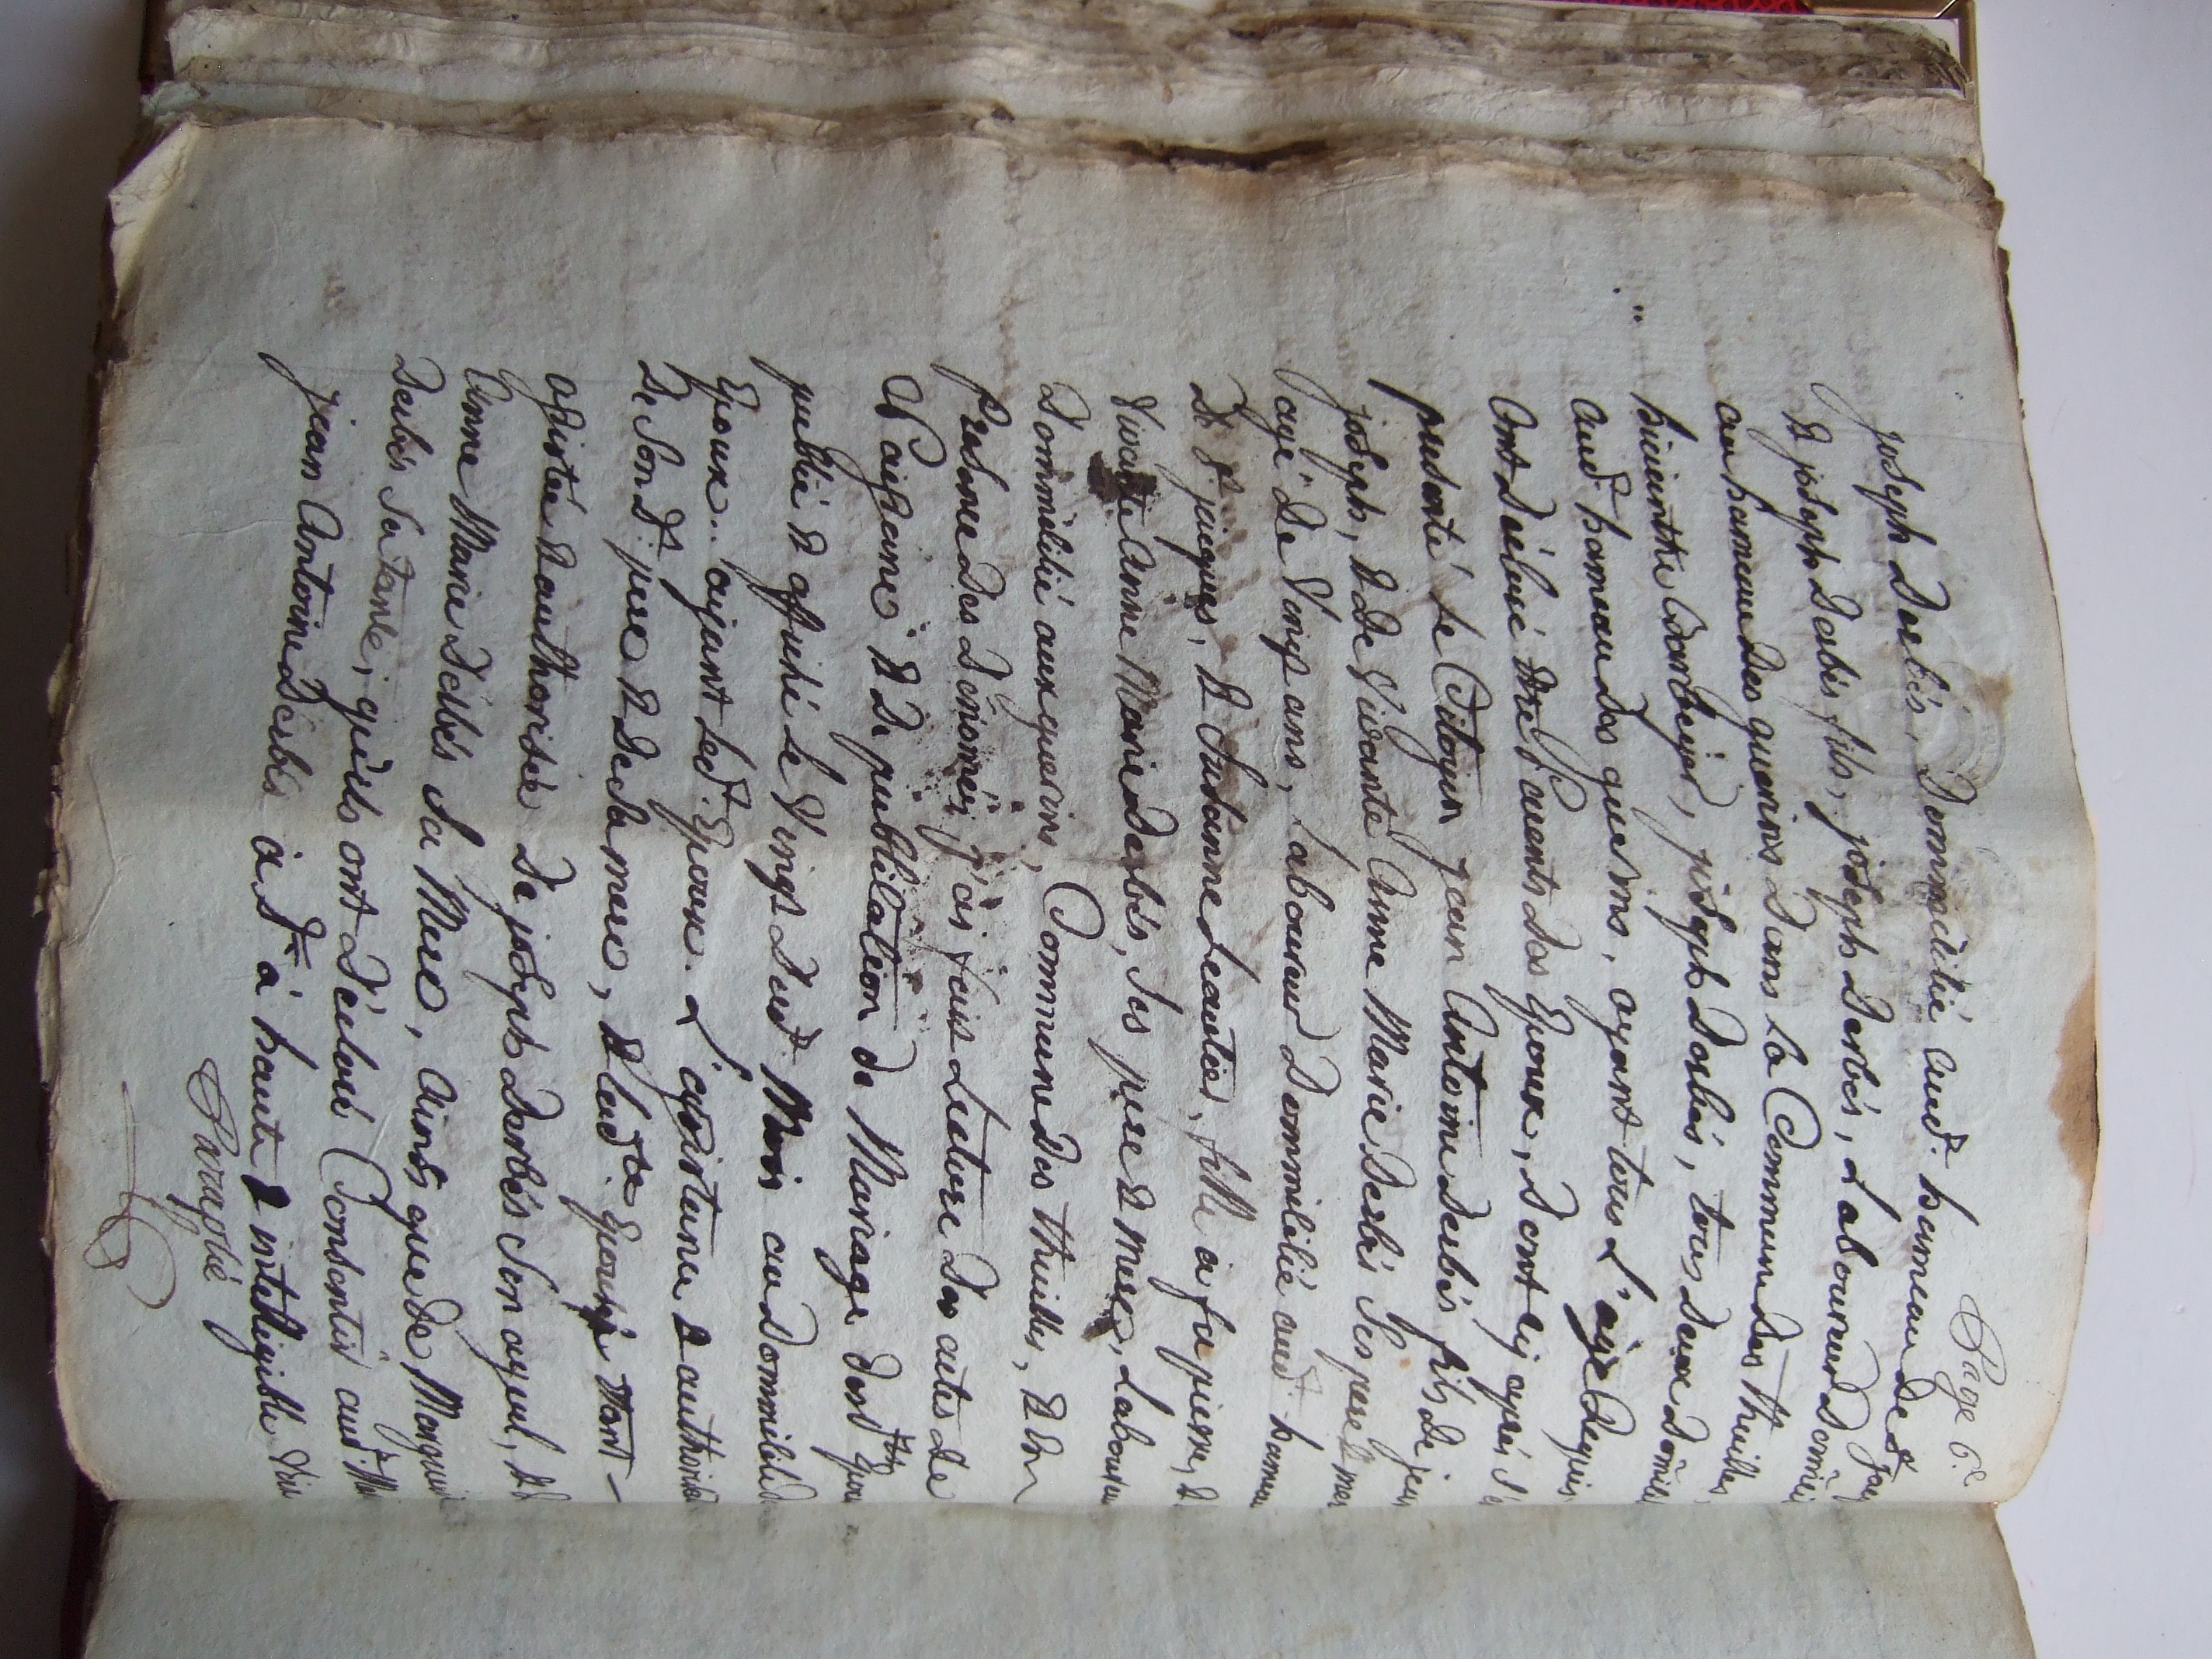 Page 6.e
joseph derbés, Dommicilié aud.t hameau de s.t jac
& joseph derbés fils, joseph derbés, Laboureur Domici
au hameau des guerins dans la Commune des thuilles,
hiacinthe Combejer, joseph derbés, tous deux domicil
aud.t hameau des guerins, ayant tous L'age requis,
ont déclaré être Parents des Epoux, sont cy après s
presenté le Citoyen jean Antoine derbés fils de jea
joseph, & de vivante Anne Marie derbés ses pere & mer
agé de vingt ans, laboureur Dommicilié aud.t hamea
De s.t jacques, & Susanne Leautier, fille à fu pierre, &
vivante Anne Marie derbés, ses pere & mere, Laboureu
Dommicilié aux guerins, Commune des thuilles, & En
presence des denomés, j'ai fait Lecture des actes de
& de publication de Mariage desd.ts Epou
publié & affiché le vingt dud.t Mois au dommicile d
Epoux. ayant led.t Epoux L'assistance & authorisa
de son d.t pere & de sa mere, & lad.te Epouse étant
assistée & authorisée de joseph derbés son ayeul, &
Anne Marie derbés sa Mere, ainsi que de Marguerit
derbés sa tante, qu'ils ont déclaré Consentir aud.t Ma
jean Antoine derbés à d.t à haute & intelligible voix
Paraphé